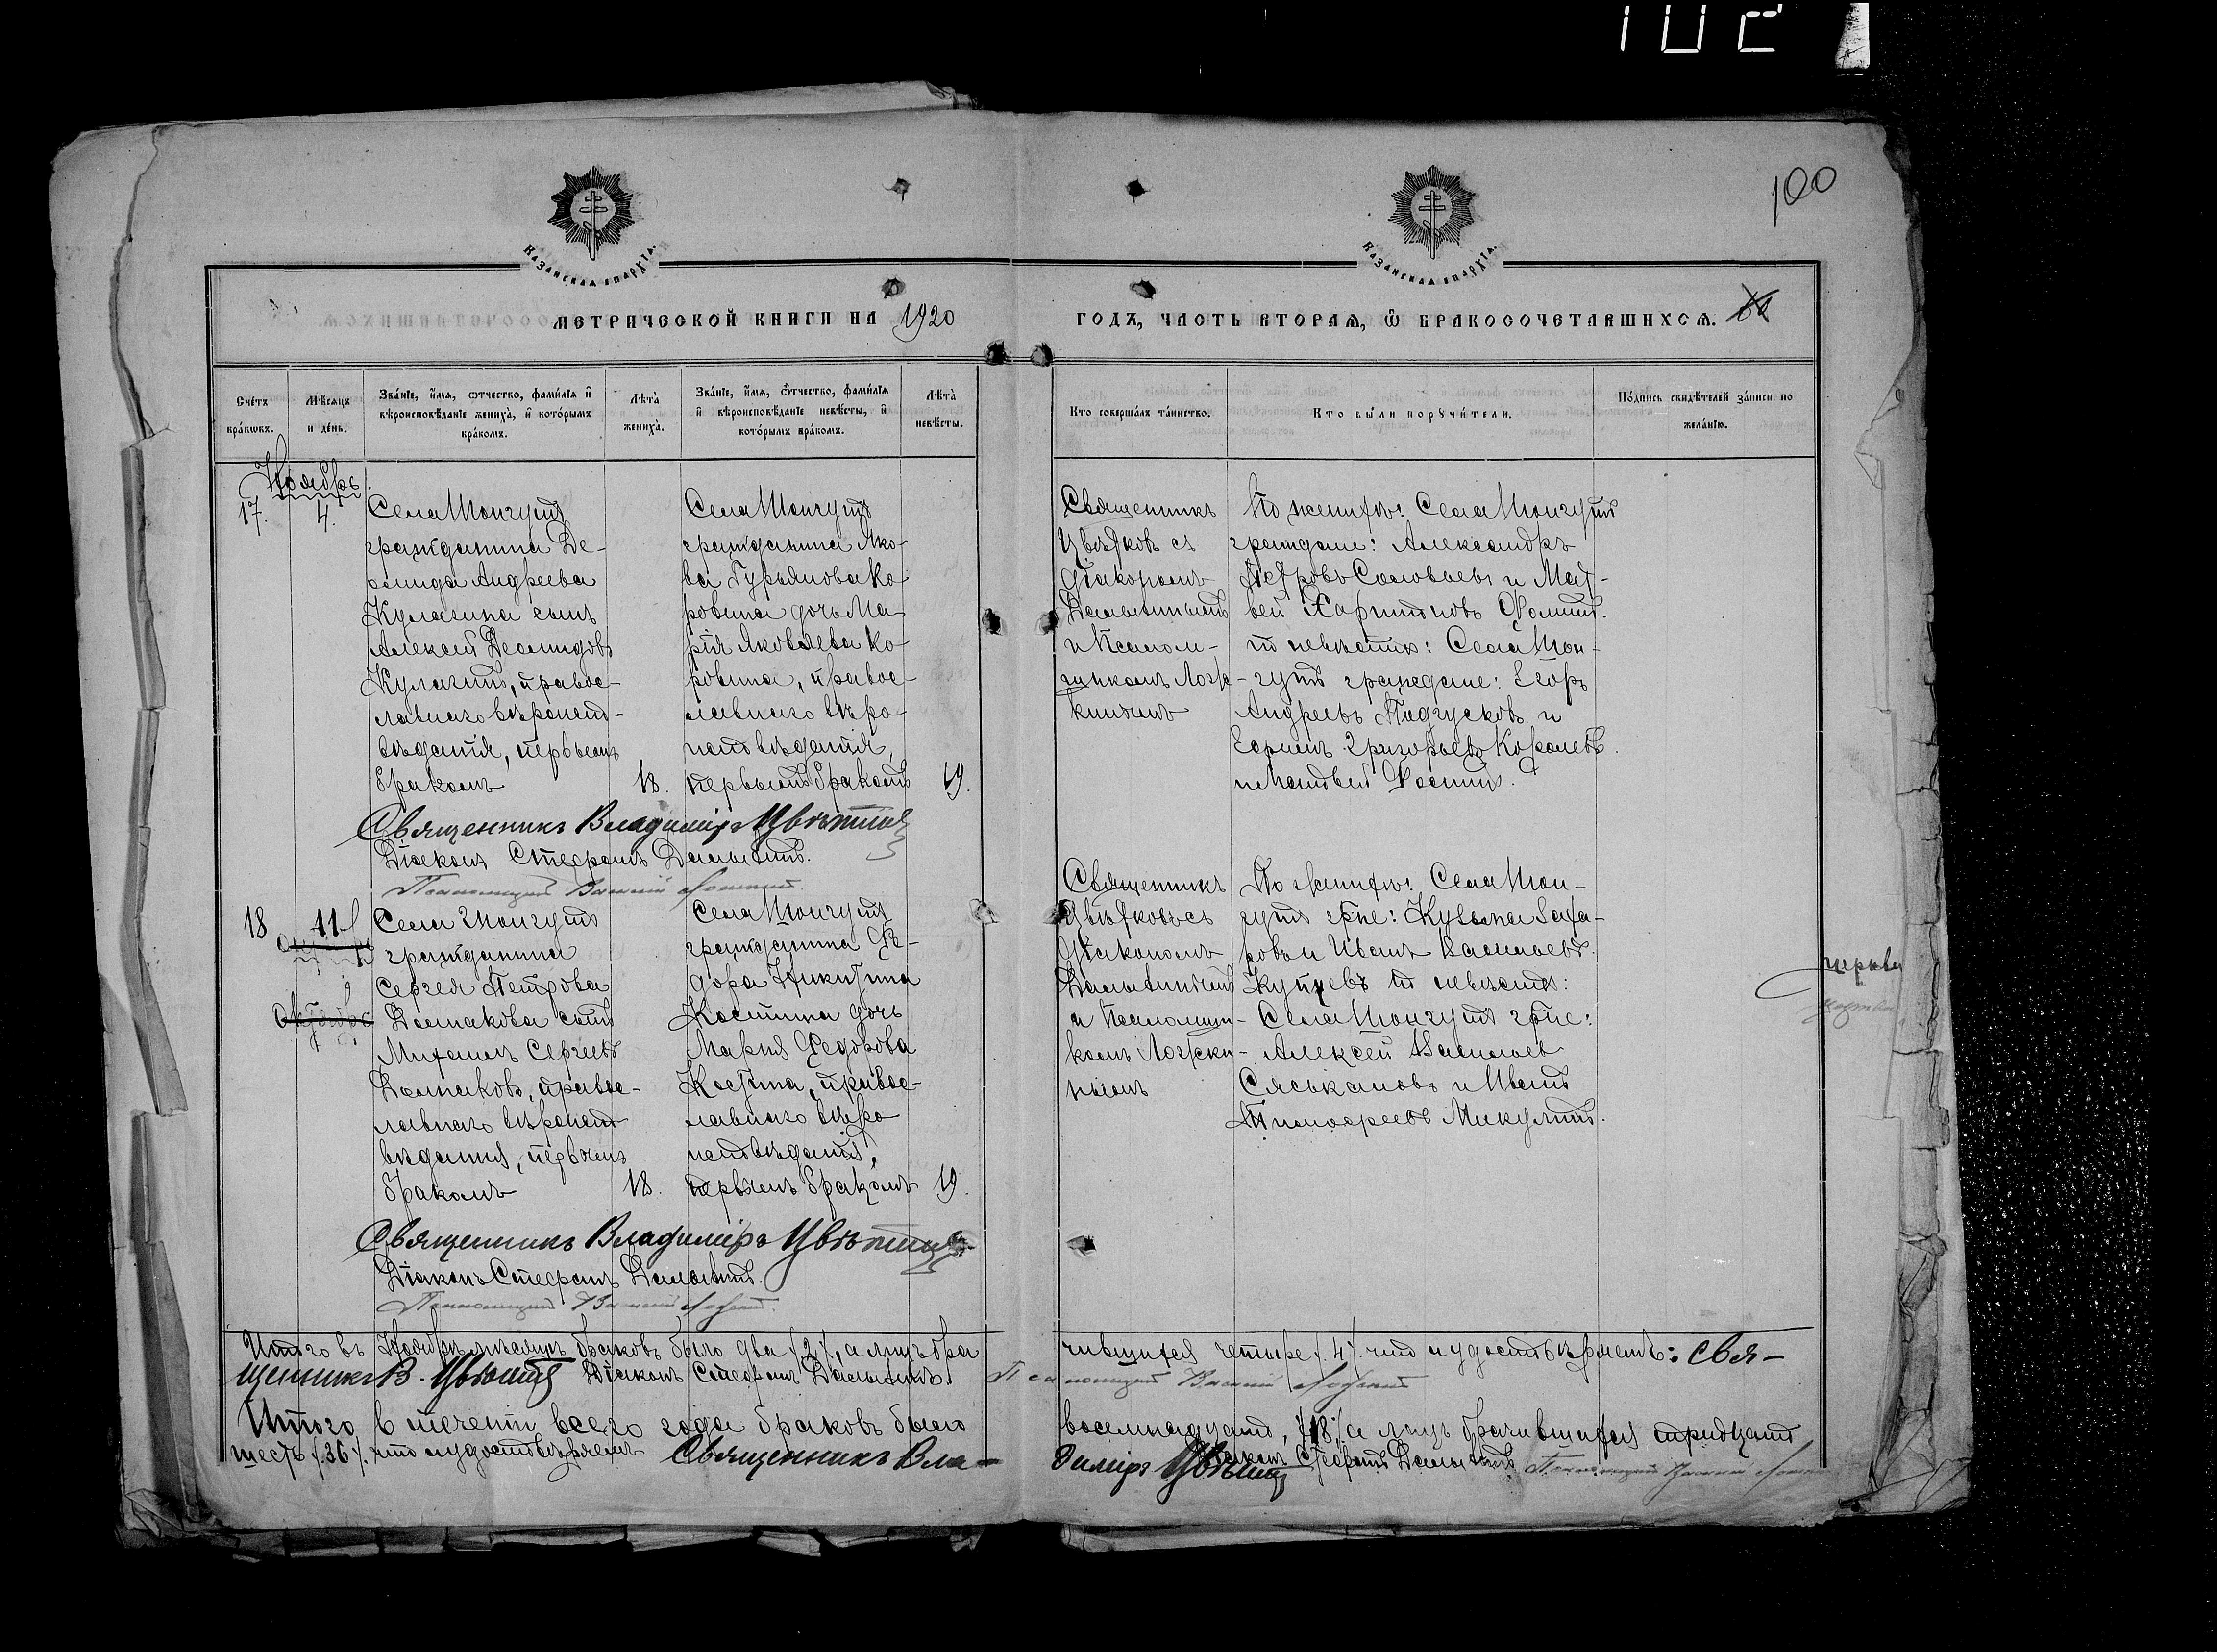 102
100
Казанская епархїа.
Казанская епархїа.
Метрической книги на 1920
годъ, часть вторая, ѡ бракосочетавшихся.
Счетъ браковъ.
Мѣсяцъ и день.
Званїе, имя, отчество, фамилїя и вѣроисповѣданїе жениха, и которымъ бракомъ.
Лѣта жениха.
Званїе, имя, отчество, фамилїя и вѣроисповѣданїе невѣсты, и которымъ бракомъ.
Лѣта невѣсты.
Кто совершалъ таинство.
Кто были поручители.
Подпись свидѣтелей записи по желанїю.
Ноябрь.
17.
4.
Села Шонгутъ
гражданина Де-
мида Андреева
Кулагина сынъ
Алексей Демидовъ
Кулагинъ, правос-
лавнаго вѣроиспо-
вѣданія, первымъ
бракомъ
18.
Села Шонгутъ
гражданина Яко-
ва Гурьянова Ко-
ровина дочь Ма-
рія Яковлева Ко-
ровина, правос-
лавнаго вѣро-
исповѣданія,
первымъ бракомъ
19.
Священникъ
Цвѣтковъ съ
діакономъ
и Псалом-
щикомъ
По женихѣ: Села Шонгутъ
граждане: Александръ
Петровъ Соловьевъ и Мат-
вей Харитоновъ Фоминъ.
по невѣстѣ: Села Шон-
гутъ граждане: Егоръ
Андреевъ и
Ефимъ Григорьевъ Королевъ.
и Матвей Фоминъ.
Священникъ Владиміръ Цвѣтковъ
Діаконъ Стефанъ
Псаломщикъ Василій
18
11
Октября
Села Шонгутъ
гражданина
Сергея Петрова
Долмакова сынъ
Михаилъ Сергеевъ
Долмаковъ, правос-
лавнаго вѣроиспо-
вѣданія, первымъ
бракомъ
18.
Села Шонгутъ
гражданина Фе-
дора Никитина
Костина дочь
Мария Федорова
Костина, правос-
лавнаго вѣро
исповѣданія,
первымъ бракомъ
19.
Священникъ
Цвѣтковъ съ
Діакономъ
и Псаломщи-
комъ
По женихѣ: Села Шон-
гутъ гр-не: Кузьма Заха-
ровъ и Иванъ Васильевъ
Купцевъ по невѣстѣ:
Села Шонгутъ гр-не:
Алексей Васильев
Сяськановъ и Иванъ
Тимофеевъ Микулинъ.
церкви
Священникъ Владиміръ Цвѣтковъ
Діаконъ Стефанъ
Псаломщикъ Василій
Итого въ Ноябрѣ мѣсяцѣ браковъ было два /2/, а лицъ бра
чившихся четыре /4/. что и удостовѣряемъ: Свя-
щенникъ В. Цвѣтковъ Діаконъ Стефанъ
Псаломщикъ Василій
Итого в течении всего года браковъ было
восемнадцать, /18/ а лицъ брачившихся тридцать
шесть /36/. что и удостовѣряемъ Священникъ Вла-
диміръ Цвѣтковъ Діаконъ Стефанъ Псаломщикъ Василій